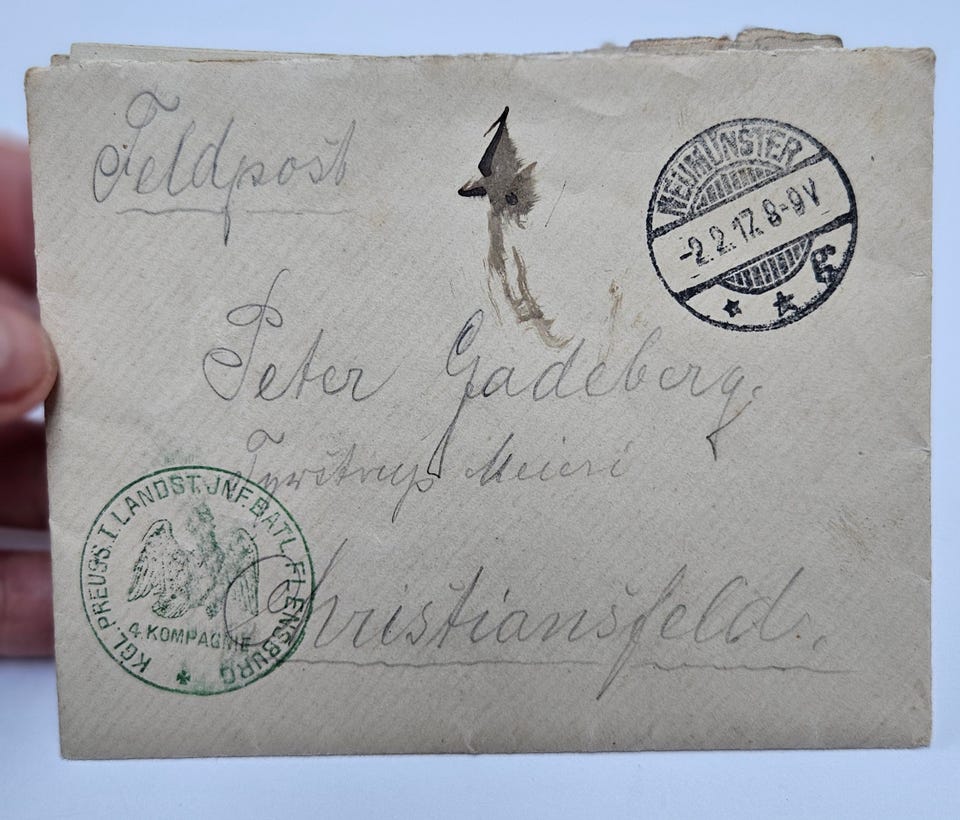 Feldpost
NEUMÜNSTER
-2.2.17. 8-9V
* * g
Peter Gadeberg.
Tyrstrup Meieri
Christiansfeld.
KGL. PREUSS. I. LANDST. JNF. BATL. FLENSBURG
4. KOMPAGNIE